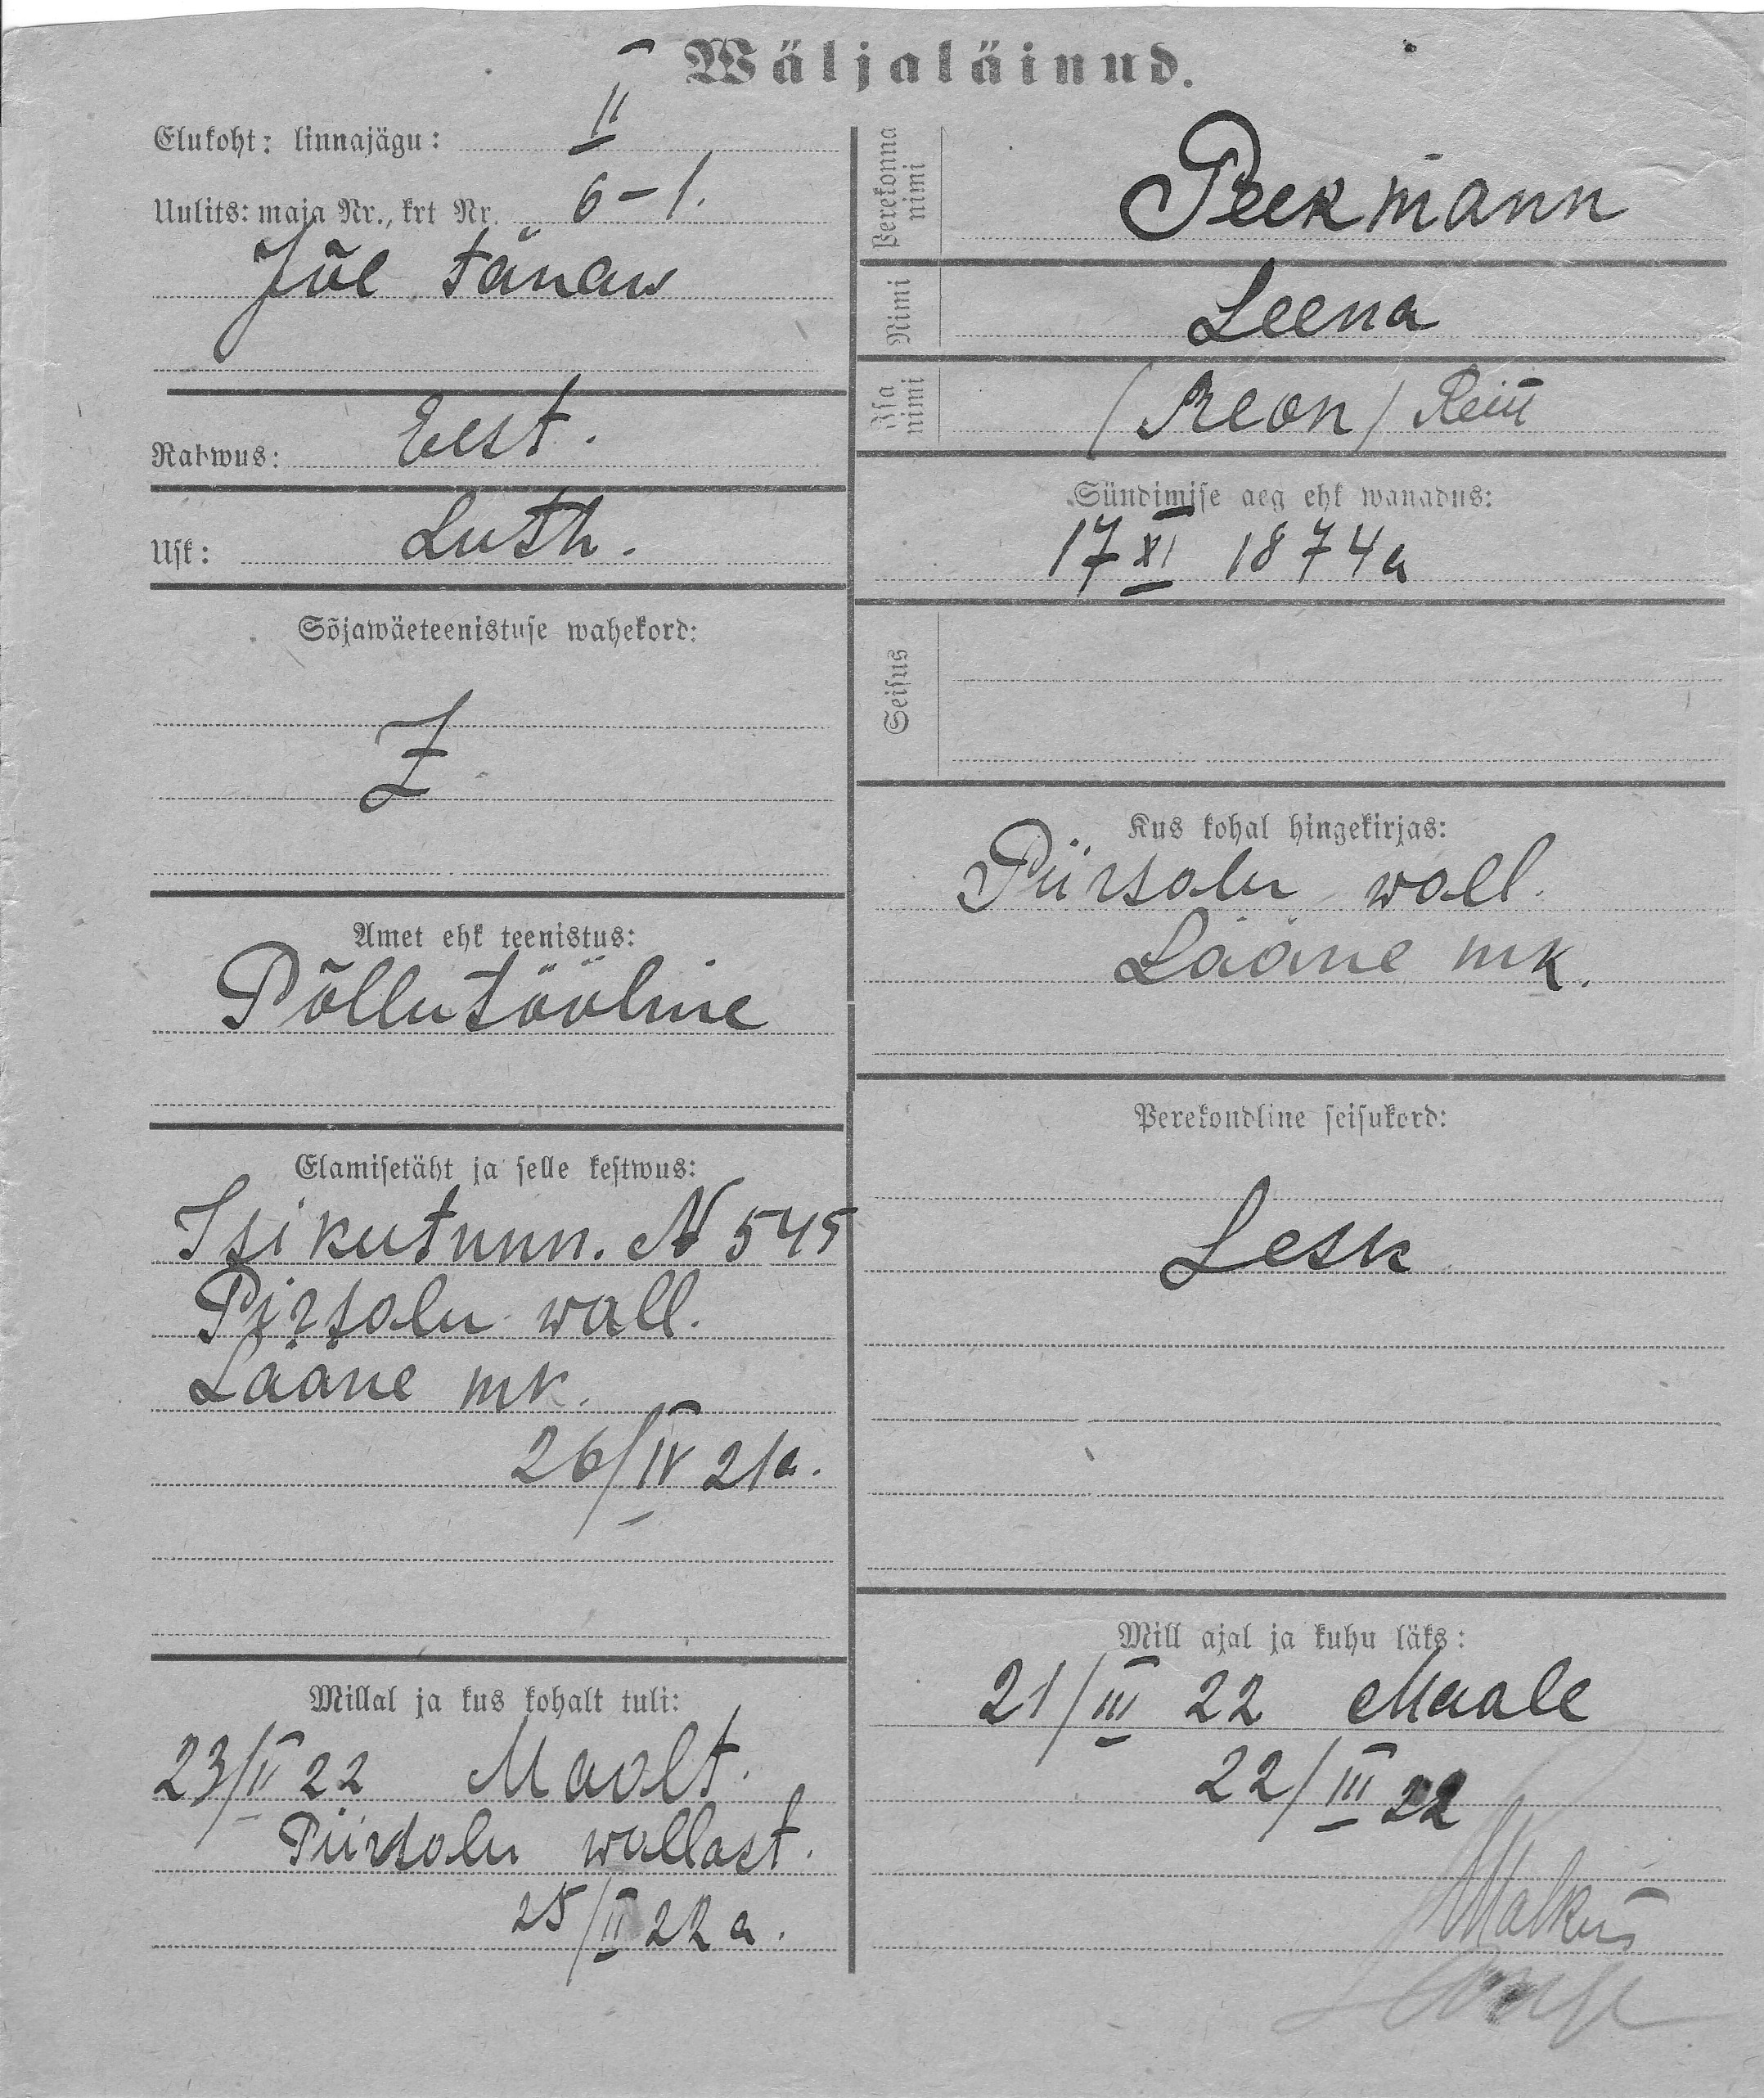 Wäljaläinud.
Elukoht: linnajägu: II
Uulits: maja Nr., krt Nr. 6-1.
Jõe tänaw
Rahwus: Eest.
Usk: Luth.
Sõjawäeteenistuse wahekord:
Z
Amet ehk teenistus:
Põllutööline
Elamisetäht ja selle kestwus:
Isikutunn. N 545
Pirsalu wall.
Lääne mk.
26/IV 21a.
Millal ja kus kohalt tuli:
23/II 22 Maalt.
Piirsalu wallast.
25/II 22 a.
Perekonna nimi
Peekmann
Nimi
Leena
Isa nimi
(Reon)
Sündimise aeg ehk wanadus:
17 XI 1874a
Seisus
Kus kohal hingekirjas:
Piirsalu wall.
Lääne mk.
Perekondline seisukord:
Lesk
Mill ajal ja kuhu läks:
21/III 22 Maale
22/III 22